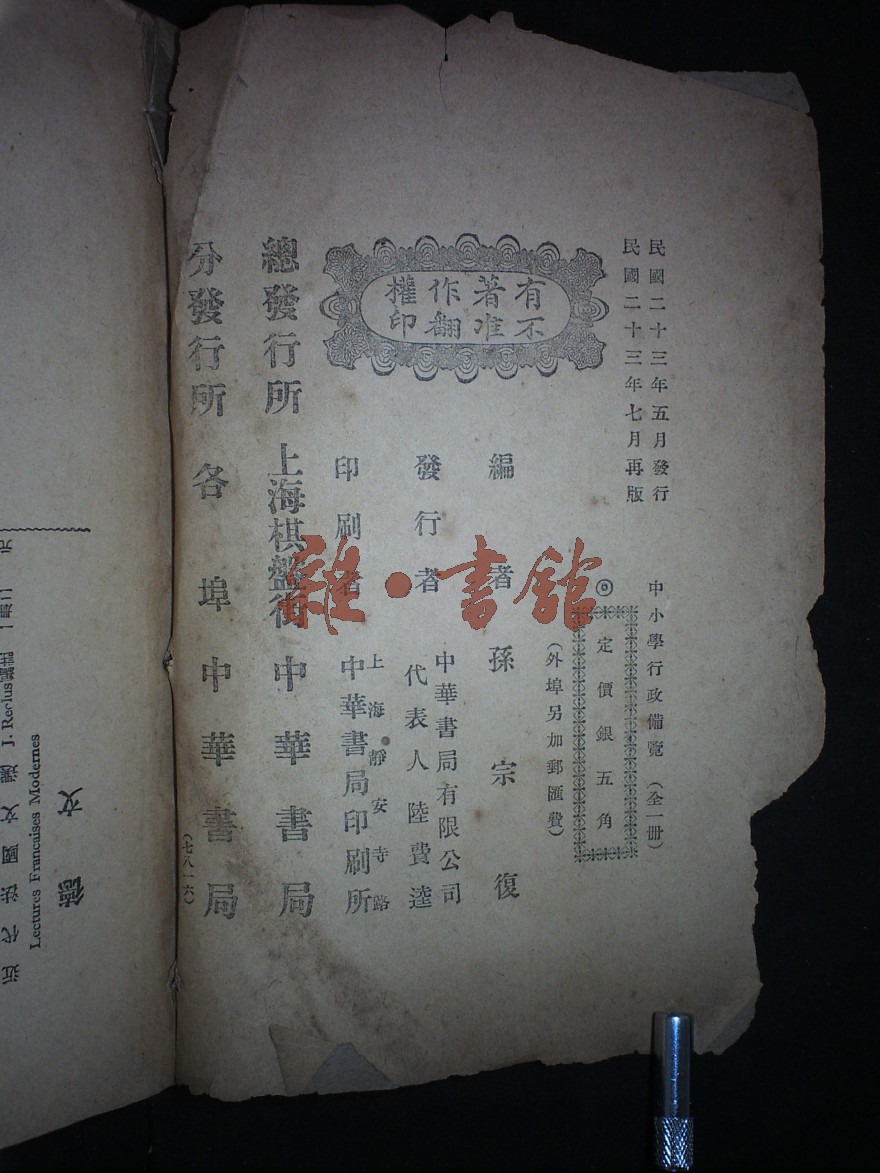 民國二十三年五月發行
民國二十三年七月再版
中小學行政備覽（全一册）
◎定價銀五角
（外埠另加郵匯費）
有著作權
不准翻印
編者 孫宗復
發行者 中華書局有限公司
代表人陸費逵
印刷者 上海靜安寺路
中華書局印刷所
總發行所 上海棋盤街 中華書局
分發行所 各埠中華書局
（七八一六）
雜·書館
德文
Lectures Francaises Modernes
近代法國文選 J. Reclus編註 一冊 元